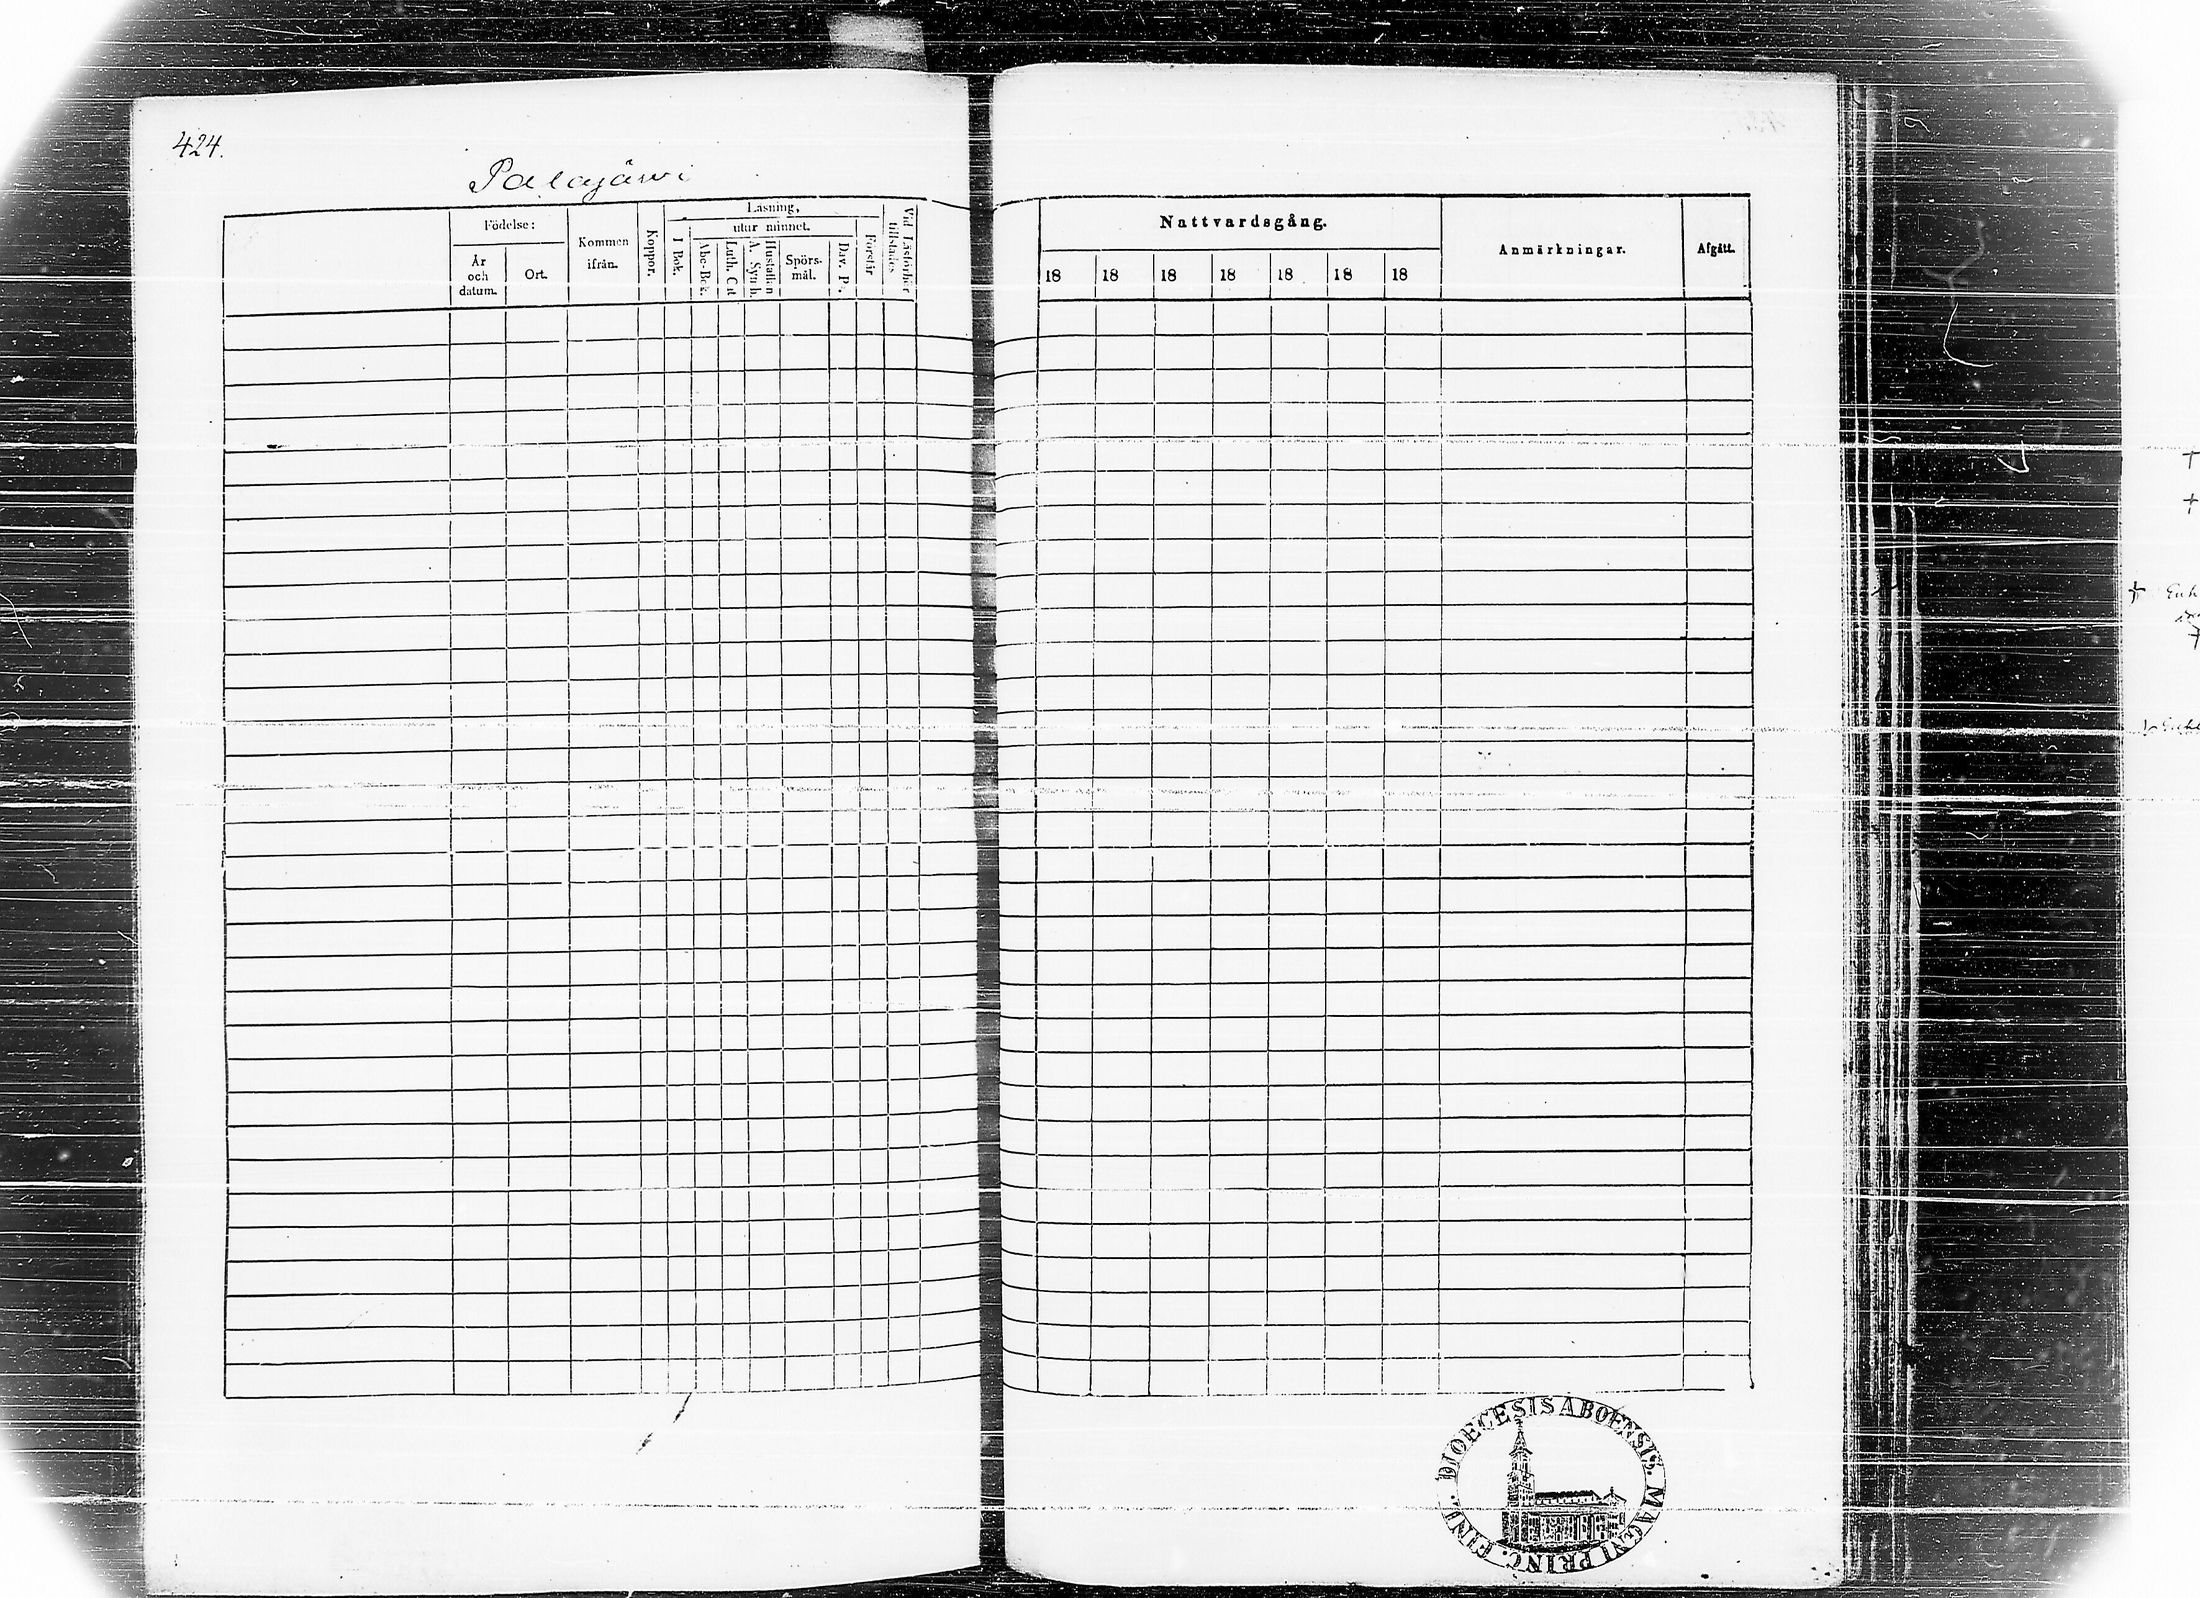 424.
Palojärvi
Födelse:
År
och
datum.
Ort.
Kommen
ifrån.
Koppor.
Läsning,
I Bok.
utur minnet.
Abc-Bok.
Luth. Cat
Hustaflan
A. Symb.
Spörs-
mål.
Dav. Ps.
Förstår
Vid Läsförhör
tillstädes
Nattvardsgång.
18 18 18 18 18 18 18
Anmärkningar.
Afgått.
DIOECESIS ABOENSIS. MAGNI PRINC. FINL.